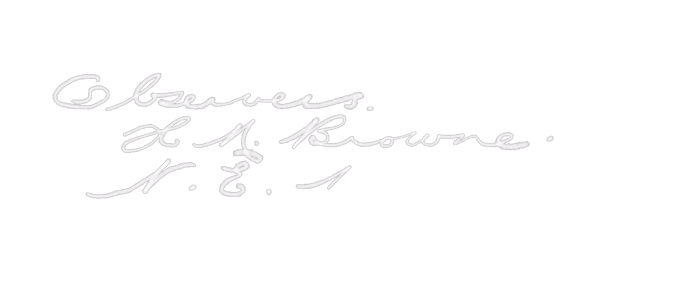 Observers.
H. M. Browne.
N. E. 1